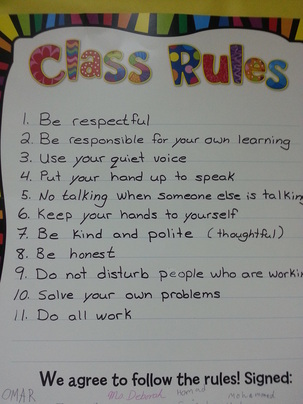 Class Rules
1. Be respectful
2. Be responsible for your own learning
3. Use your quiet voice
4. Put your hand up to speak
5. No talking when someone else is talking
6. Keep your hands to yourself
7. Be kind and polite (thoughtful)
8. Be honest
9. Do not disturb people who are workin
10. Solve your own problems
11. Do all work
We agree to follow the rules! Signed:
OMAR Ms Deborah Hamad Mohammed